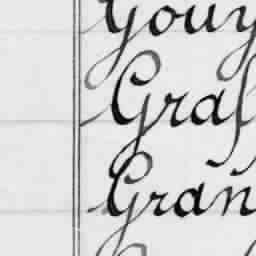 Gouy
Graf
Grañ